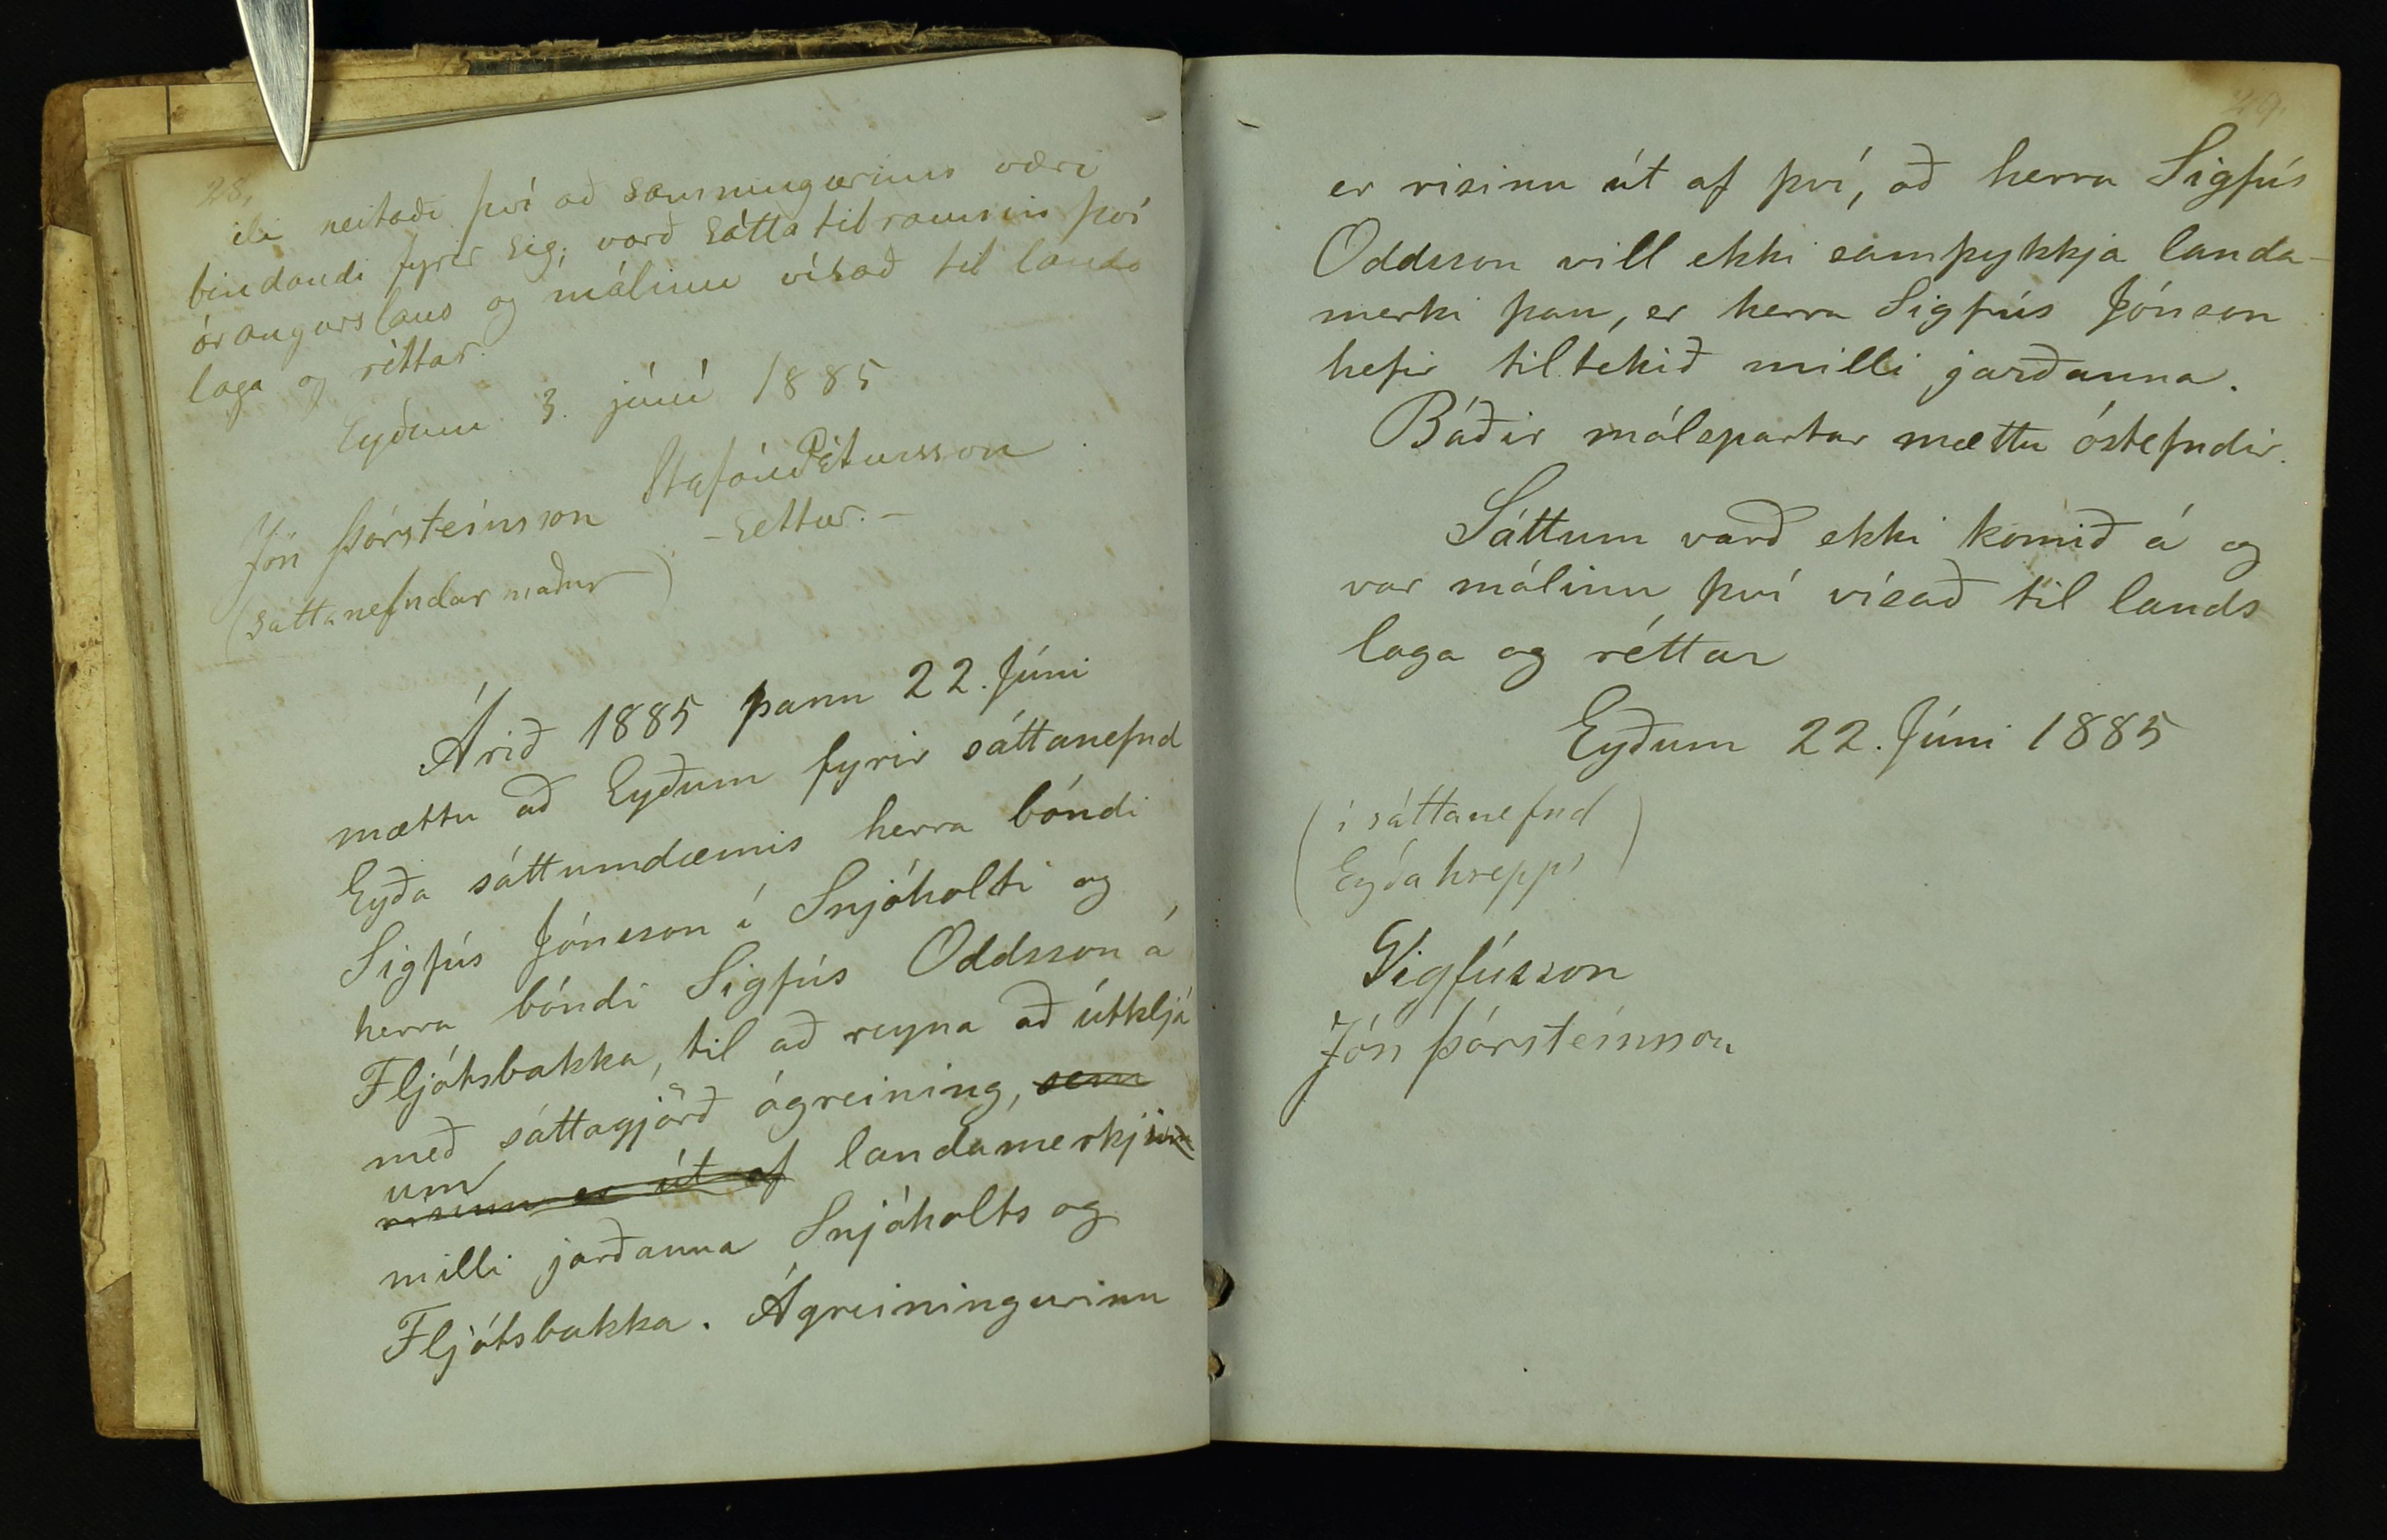 28.
ili neitaði því að samningurinn væri
bindandi fyrir sig; varð sáttatilraunin því
árangurslaus og málinu vísað til lands
laga og réttar.
Eyðum 3. júní 1885
Stefán Pétursson
Jón Þórsteinsson
- settur. -
(sáttanefndar maður)
Árið 1885 þann 22. Júni
mættu að Eyðum fyrir sáttanefnd
Eyða sáttumdæmis herra bóndi
Sigfús Jónsson í Snjóholti og
herra bóndi Sigfús Oddsson á
Fljótsbakka, til að reyna að útkljá
með sáttagjörð ágreining, sem
um
risinn er út af landamerkjum
milli jarðanna Snjóholts og
Fljótsbakka. Ágreiningurinn
29.
er risinn út af því, að herra Sigfús
Oddsson vill ekki samþykkja landa-
merki þau, er herra Sigfús Jónson
hefir tiltekið milli jarðanna.
Báðir málspartar mættu óstefndir.
Sáttum varð ekki komið á og
var málinu því vísað til lands
laga og réttar
Eyðum 22. Júni 1885
(í sáttanefnd
Eyðahreppi)
Vigfússon
Jón Þórsteinsson